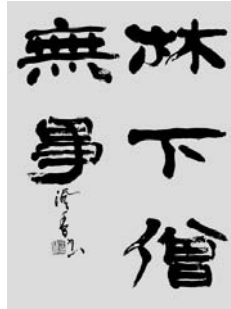 林下僧
無事